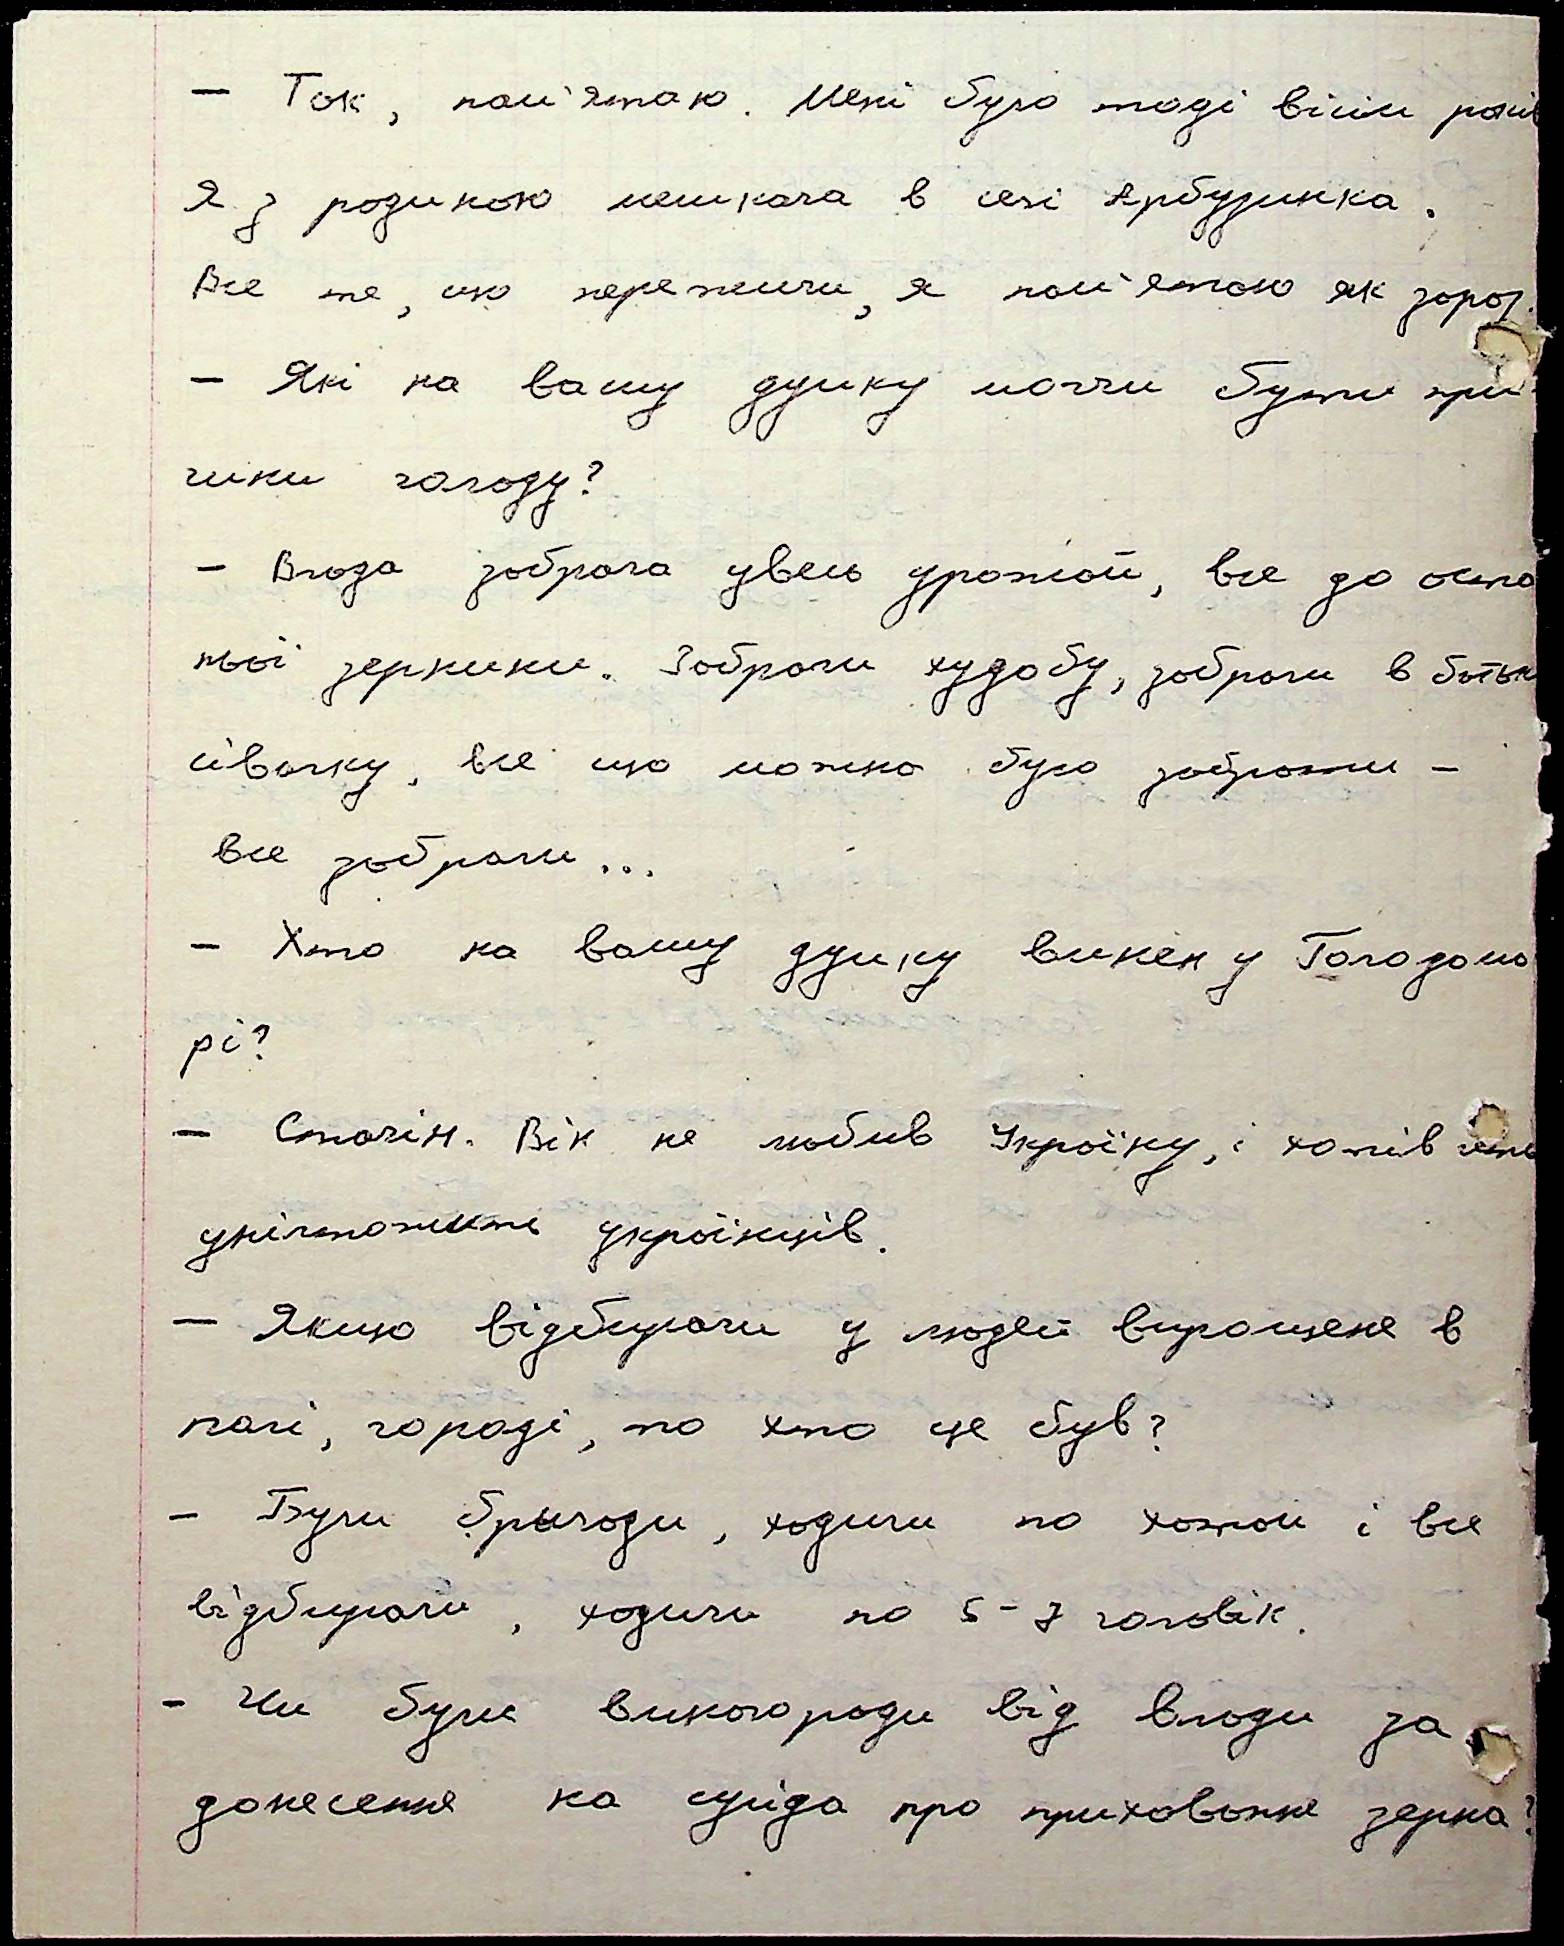 — Так, пам'ятаю. Мені було тоді вісім років
Я з родиною мешкала в селі Арбузинка.
Все те, що пережили, я пам'ятаю як зараз.
— Які на вашу думку могли бути при-
чини голоду?
— Влада забрала увесь урожай, все до оста
ньої зернини. Забрали худобу, забрали в батьк
сівалку, все що можна було забрати —
все забрали...
— Хто на вашу думку винен у Голодомо
рі?
— Сталін. Він не любив Україну, і хотів
унічтожить українців.
— Якщо відбирали у людей вирощене в
полі, городі, то хто це був?
— Були бригади, ходили по хатам і все
відбирали, ходили по 5-7 чоловік.
— Чи були винагороди від влади за
донесення на сусіда про приховання зерна?